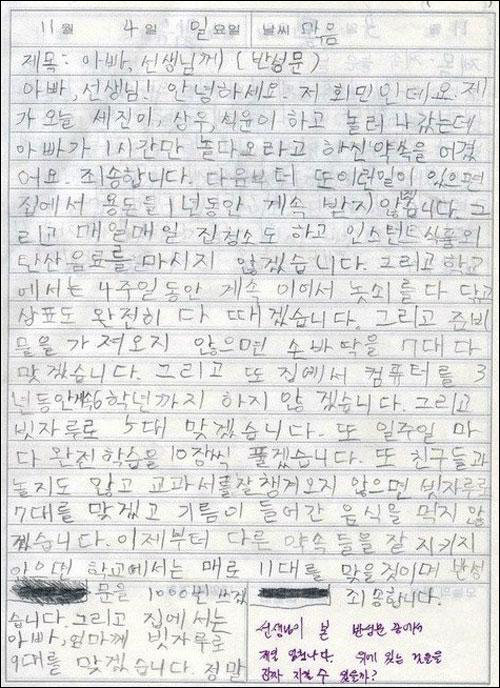 11월 4일 일요일 날씨 맑음
제목: 아빠, 선생님께 (반성문)
아빠, 선생님! 안녕하세요. 저 희민인데요. 제
가 오늘 세진이, 상우, 식윤이 하고 놀러 나갔는데
아빠가 1시간만 놀다오라고 하신약속을 어겼
어요. 죄송합니다. 다음부터 또이런일이 있으면
집에서 용돈을 1년동안 계속 받지 않겠습니다. 그
리고 매일매일 집청소도 하고 인스턴트식품의
탄산음료를 마시지 않겠습니다. 그리고 학교
에서는 4주일동안 계속 이어서 놋쇠를 다 닦고
상표도 완전히 다 떼겠습니다. 그리고 준비
물을 가져오지 않으면 손바닥을 7대 다
맞겠습니다. 그리고 또 집에서 컴퓨터를 3
년동안 6학년까지 하지 않겠습니다. 그리고
빗자루로 5대 맞겠습니다. 또 일주일 마
다 완전학습을 10장씩 풀겠습니다. 또 친구들과
놀지도 않고 교과서를 잘챙겨오지 않으면 빗자루로
7대를 맞겠고 기름이 들어간 음식을 먹지 않
겠습니다. 이제부터 다른 약속들을 잘 지키지
않으면 학교에서는 매로 11대를 맞을것이며 반성
문을 1000번 쓰겠
습니다. 그리고 집에서는
아빠, 엄마께 빗자루로
9대를 맞겠습니다. 정말
죄송합니다.
선생님이 본 반성문 중에서
제일 멋지다. 위에 있는 것들을
감자 지킬 수 있을까?